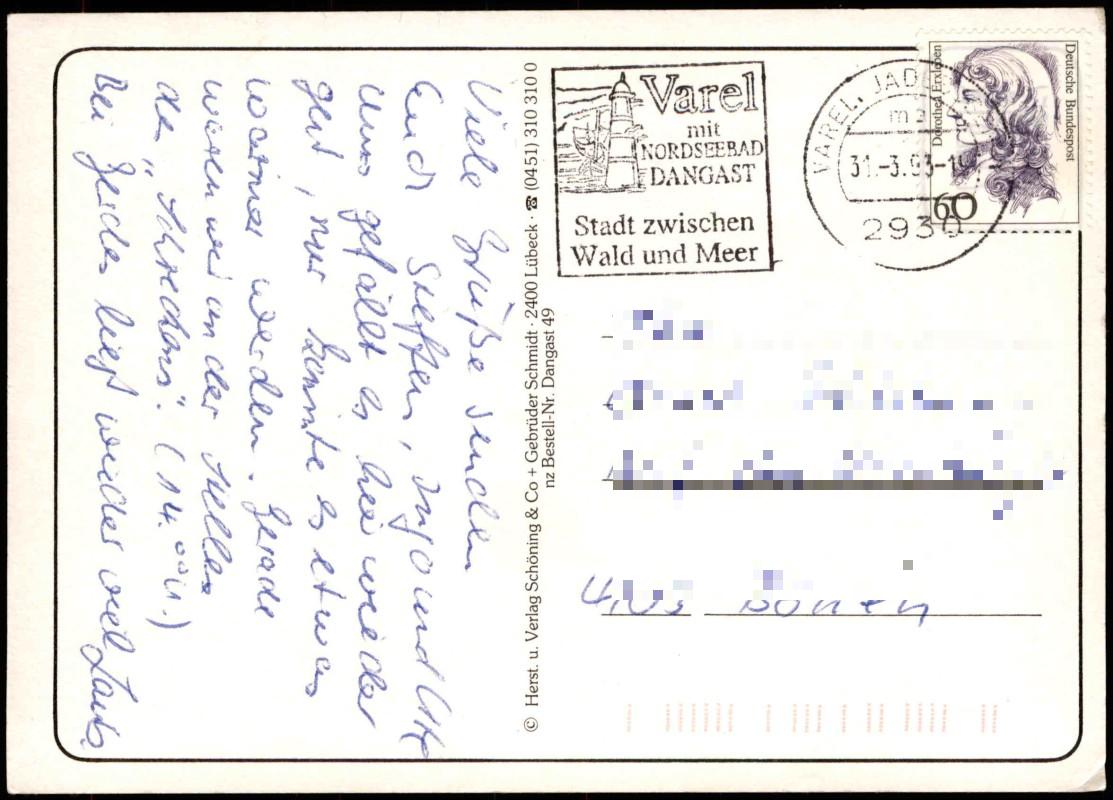 Viele Grüße senden
Euch Steffen, Ingo und
Uns gefällt es hier wieder
gut, nur könnte es etwas
wärmer werden. Gerade
waren wir an der Stelle
des „Schreckens“. (14.00 U.)
Bei liegt wieder viel
© Herst. u. Verlag Schöning & Co + Gebrüder Schmidt · 2400 Lübeck · ☎ (0451) 310 310 0
nz Bestell-Nr. Dangast 49
Varel
mit
NORDSEEBAD
DANGAST
Stadt zwischen
Wald und Meer
VAREL, JAD
31.-3.93-1
2930
Dorothea Erxleben
Deutsche Bundespost
60